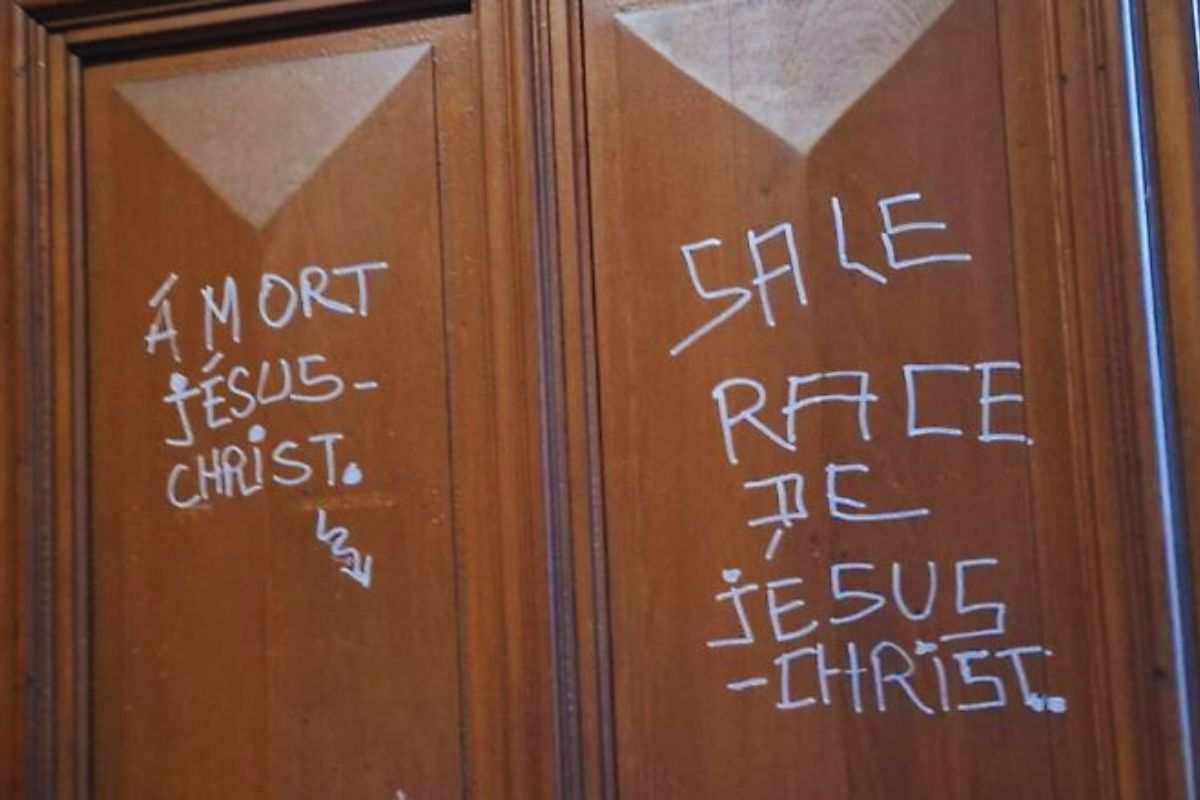 Á MORT
JÉSUS-
CHRIST.
SALE
RACE
DE
JÉSUS
-CHRIST.